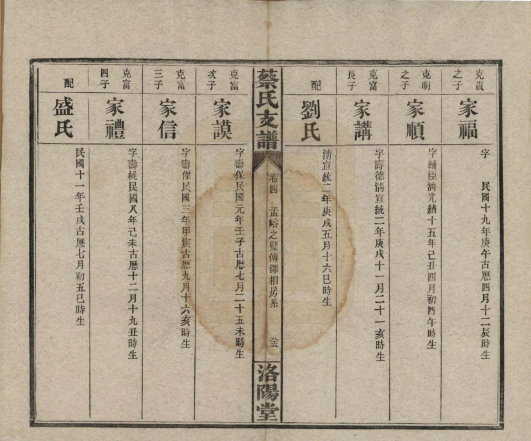 克貴之子
家福
字 民國十九年庚午古歷四月十二辰時生
克明之子
家順
字輔臣清光緒十五年己丑四月初四午時生
克富長子
家講
字壽德清宣統二年庚戌十一月二十一亥時生
配
劉氏
清宣統二年庚戌五月十六巳時生
蔡氏支譜
卷四
洛陽堂
克富次子
家謨
字壽保民國元年壬子古歷七月二十五未時生
克富三子
家信
字壽傑民國三年甲寅古歷九月十六亥時生
克富四子
家禮
民國八年己未古歷十二月十九丑時生
配
盛氏
民國十一年壬戌古歷七月初五巳時生